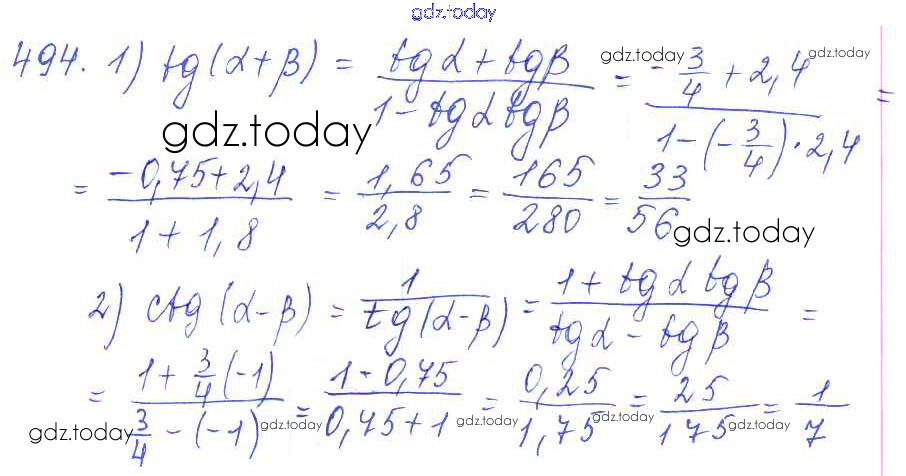 gdz.today
494. 1) tg(α+β) = (tgα + tgβ)/(1 - tgα tgβ) = (-3/4 + 2,4)/(1-(-3/4)·2,4) =
gdz.today
gdz.today
= (-0,75+2,4)/(1+1,8) = 1,65/2,8 = 165/280 = 33/56
gdz.today
2) ctg(α-β) = 1/tg(α-β) = (1+tgα tgβ)/(tgα - tgβ) =
= (1+3/4(-1))/(3/4-(-1)) = (1-0,75)/(0,75+1) = 0,25/1,75 = 25/175 = 1/7
gdz.today
gdz.today
gdz.today
gdz.today